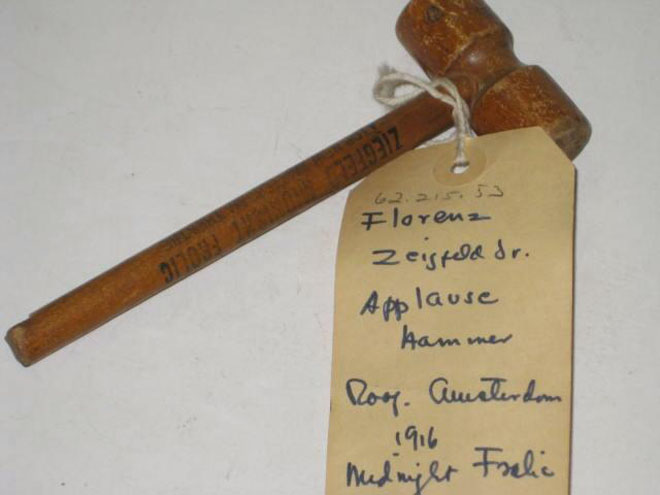 ZIEGFELD MIDNIGHT FROLIC
62.215.53
Florenz
Zeigfeld Jr.
Applause
hammer
Roof. Amsterdam
1916
Midnight Frolic